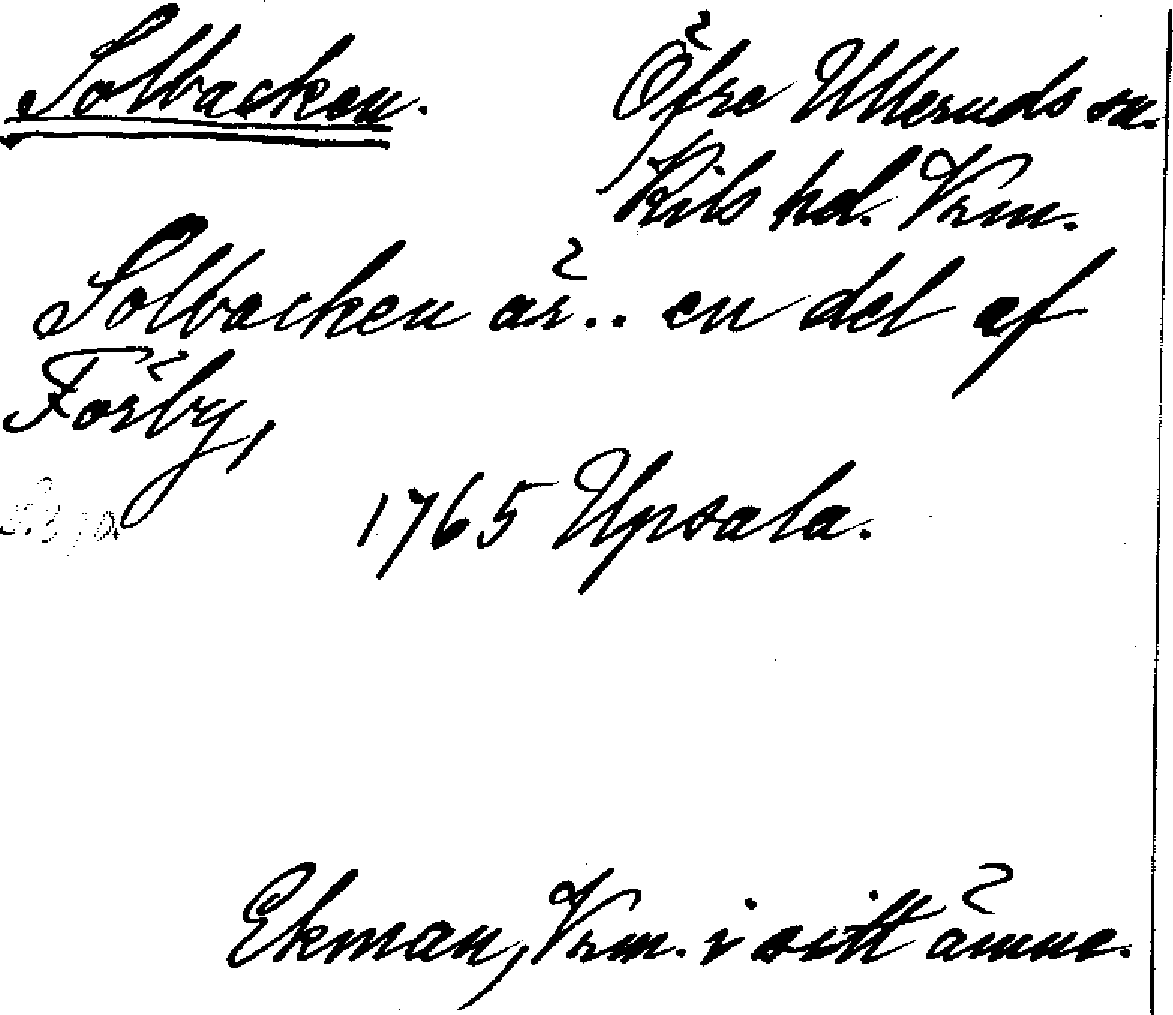 Solbacken.
Öfre Ulleruds sn.
Kils hd. Vrm.
Solbacken är.. en del af
Förby,
1765 Upsala.
Ekman, Vrm. i sitt ämne.